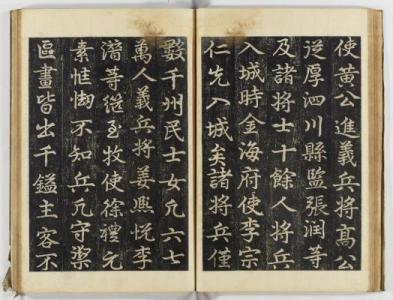 使黃公進義兵將高公
從厚泗川縣監張潤等
及諸將士十餘人將兵
入城時金海府使李宗
仁先入城矣諸將兵僅
數千州民士女凡六七
萬人義兵將姜熙悅李
潛等継至牧使徐禮元
素恇㤼不知兵凡守禦
區畫皆出千鎰主客不